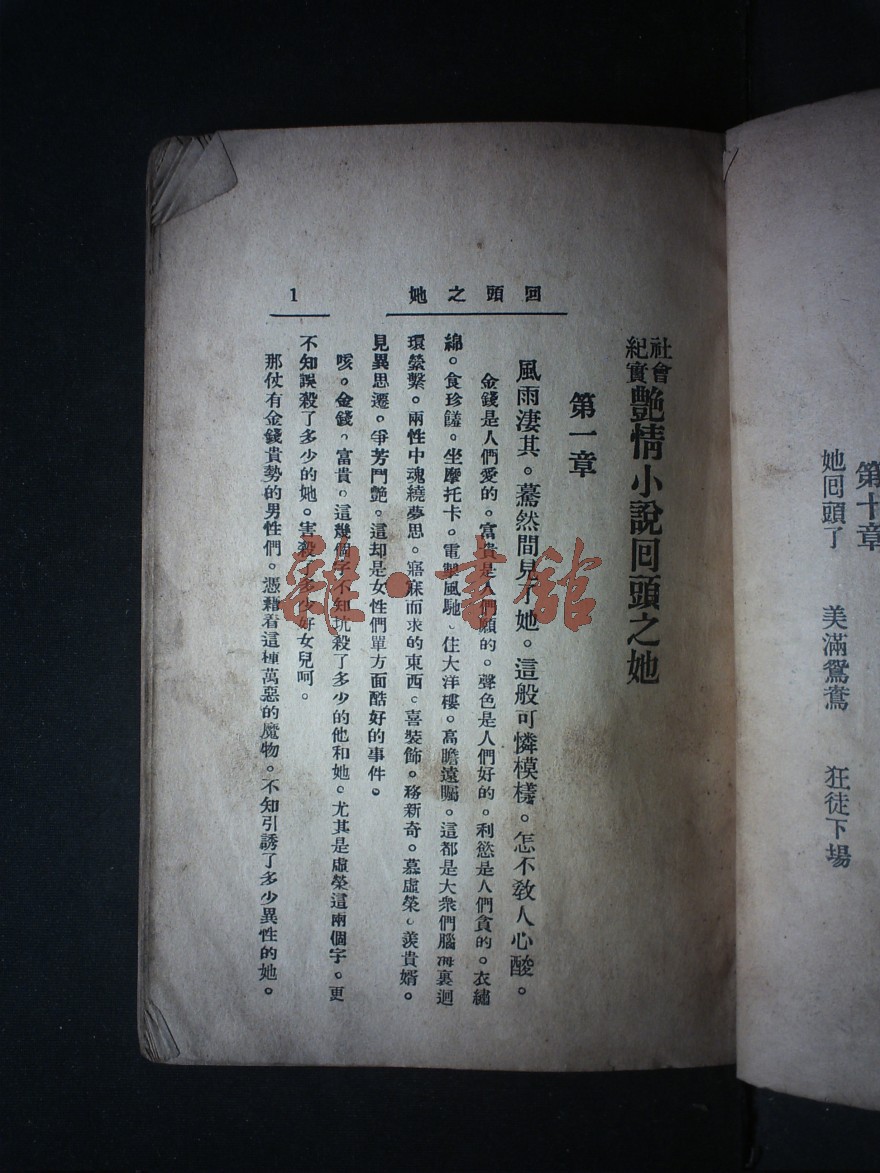 第十章
她囘頭了　美滿鴛鴦　狂徒下場
社會
紀實
艷情小說囘頭之她
回頭之她
1
第一章
風雨淒其。驀然間見了她。這般可憐模樣。怎不敎人心酸。
金錢是人們愛的。富貴是人們願的。聲色是人們好的。利慾是人們貪的。衣繡
綿。食珍饈。坐摩托卡。電掣風馳。住大洋樓。高瞻遠矚。這都是大衆們腦海裏迴
環縈繫。兩性中魂繞夢思。寤寐而求的東西。喜裝飾。務新奇。慕虛榮。羨貴婿。
見異思遷。爭芳鬥艷。這却是女性們單方面酷好的事件。
咳。金錢。富貴。這幾個字不知坑殺了多少的他和她。尤其是虛榮這兩個字。更
不知誤殺了多少的她。害殺了多少好女兒呵。
那仗有金錢貴勢的男性們。憑藉着這種萬惡的魔物。不知引誘了多少異性的她。
雜·書舘